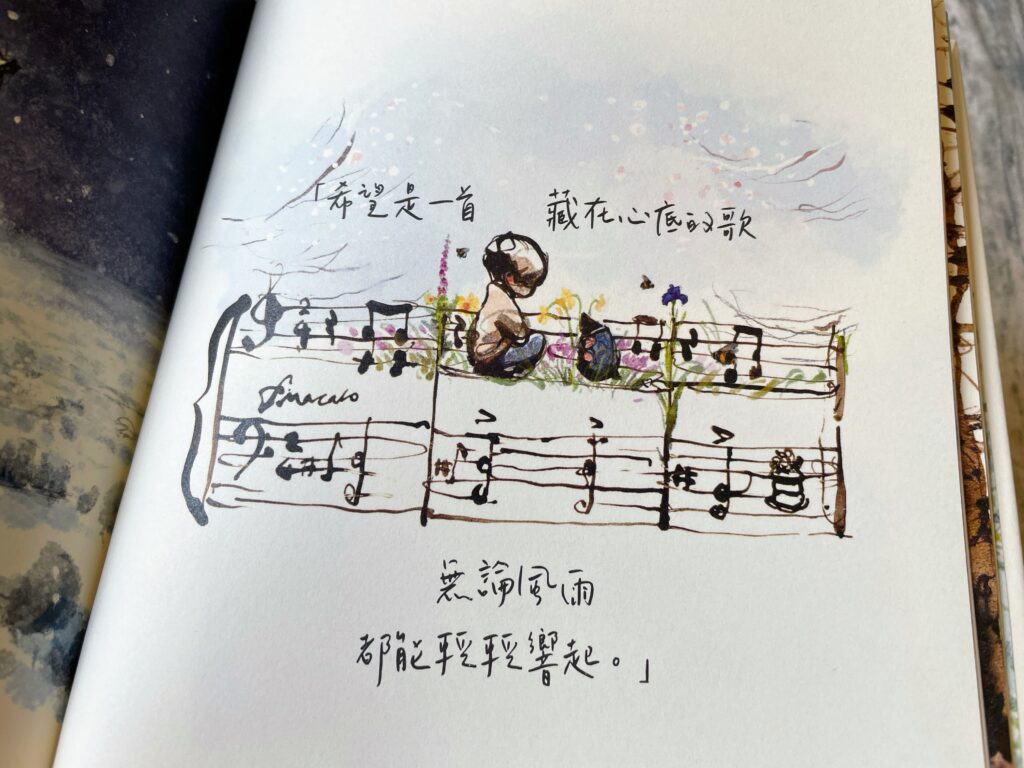 「希望是一首 藏在心底的歌
無論風雨
都能輕輕響起。」